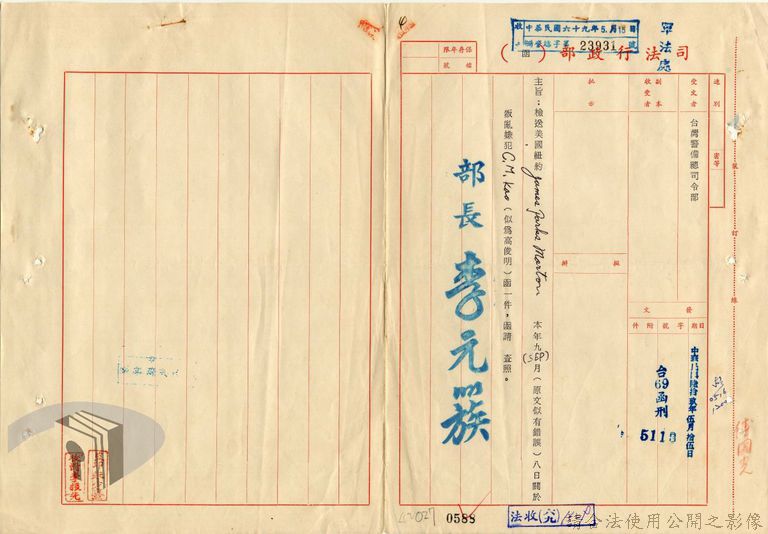 中華民國六十九年5月15日
23931 號
軍法處
司法行政部（　）函
保存年限
檔號
速別
密等
受文者
台灣警備總司令部
副本收受者
批示
擬辦
發文
日期 字號 附件
中華民國陸拾玖年伍月拾伍日
台69函刑
5113
主旨：檢送美國紐約 James Parks Morton 本年九月(SEP)（原文似有錯誤）八日關於
叛亂嫌犯 C. M. Kao（似為高俊明）函一件，函請　查照。
部長 李元簇
裝
訂
線
0588
法收(六)
請合法使用公開之影像